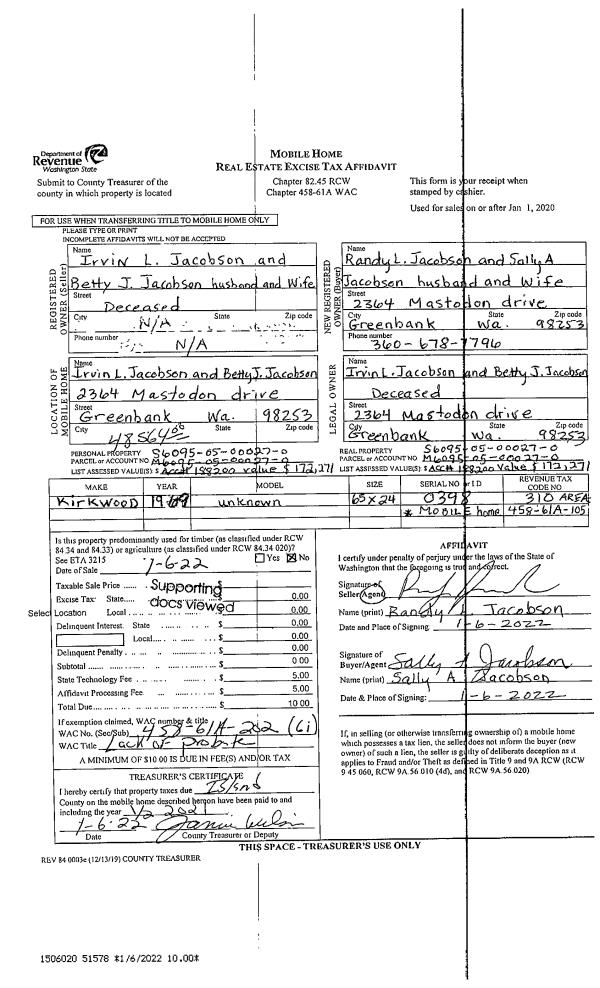 Department of
Revenue
Washington State
Submit to County Treasurer of the
county in which property is located
MOBILE HOME
REAL ESTATE EXCISE TAX AFFIDAVIT
Chapter 82.45 RCW
Chapter 458-61A WAC
This form is your receipt when
stamped by cashier.
Used for sales on or after Jan 1, 2020
FOR USE WHEN TRANSFERRING TITLE TO MOBILE HOME ONLY
PLEASE TYPE OR PRINT
INCOMPLETE AFFIDAVITS WILL NOT BE ACCEPTED
REGISTERED OWNER (Seller)
Name
Irvin L. Jacobson and
Betty J. Jacobson husband and Wife
Street
Deceased
City State Zip code
N/A
Phone number
N/A
NEW REGISTERED OWNER (Buyer)
Name
Randy L. Jacobson and Sally A
Jacobson husband and Wife
Street
2364 Mastodon drive
City State Zip code
Greenbank Wa. 98253
Phone number
360-678-7796
LOCATION OF MOBILE HOME
Name
Irvin L. Jacobson and Betty J. Jacobson
2364 Mastodon drive
Street
Greenbank Wa. 98253
City State Zip code
LEGAL OWNER
Name
Irvin L. Jacobson and Betty J. Jacobson
Deceased
Street
2364 Mastodon drive
City State Zip code
Greenbank Wa. 98253
PERSONAL PROPERTY S6095-05-00027-0
PARCEL or ACCOUNT NO M6095-05-00027-0
LIST ASSESSED VALUE(S) $ Acc# 198200 value $ 172,271
REAL PROPERTY S6095-05-00027-0
PARCEL or ACCOUNT NO M6095-05-00027-0
LIST ASSESSED VALUE(S) $ Acc# 198200 Value $ 172,271
MAKE YEAR MODEL SIZE SERIAL NO or ID REVENUE TAX CODE NO
Kirkwood unknown 65 x 24 0398 310 AREA
* MOBILE home 458-61A-105
Is this property predominantly used for timber (as classified under RCW
84.34 and 84.33) or agriculture (as classified under RCW 84.34 020)?
See ETA 3215 Yes No
Date of Sale 1-6-22
Taxable Sale Price $ Supporting
Excise Tax: State $ docs viewed 0.00
Select Location Local $ 0.00
Delinquent Interest: State $ 0.00
Local $ 0.00
Delinquent Penalty $ 0.00
Subtotal $ 0 00
State Technology Fee $ 5.00
Affidavit Processing Fee $ 5.00
Total Due $ 10 00
If exemption claimed, WAC number & title
WAC No. (Sec/Sub) 458-61A-202 (6i)
WAC Title Lack of Probate
A MINIMUM OF $10.00 IS DUE IN FEE(S) AND/OR TAX
TREASURER'S CERTIFICATE
I hereby certify that property taxes due Island
County on the mobile home described hereon have been paid to and
including the year 1/2 2021
1-6-22
Date County Treasurer or Deputy
AFFIDAVIT
I certify under penalty of perjury under the laws of the State of
Washington that the foregoing is true and correct.
Signature of
Seller/Agent
Name (print) Randy L Jacobson
Date and Place of Signing 1-6-2022
Signature of
Buyer/Agent Sally A Jacobson
Name (print) Sally A Jacobson
Date & Place of Signing: 1-6-2022
If, in selling (or otherwise transferring ownership of) a mobile home
which possesses a tax lien, the seller does not inform the buyer (new
owner) of such a lien, the seller is guilty of deliberate deception as it
applies to Fraud and/or Theft as defined in Title 9 and 9A RCW (RCW
9 45 060, RCW 9A 56 010 (4d), and RCW 9A.56 020)
THIS SPACE - TREASURER'S USE ONLY
REV 84 0003e (12/13/19) COUNTY TREASURER
1506020 51578 *1/6/2022 10.00*